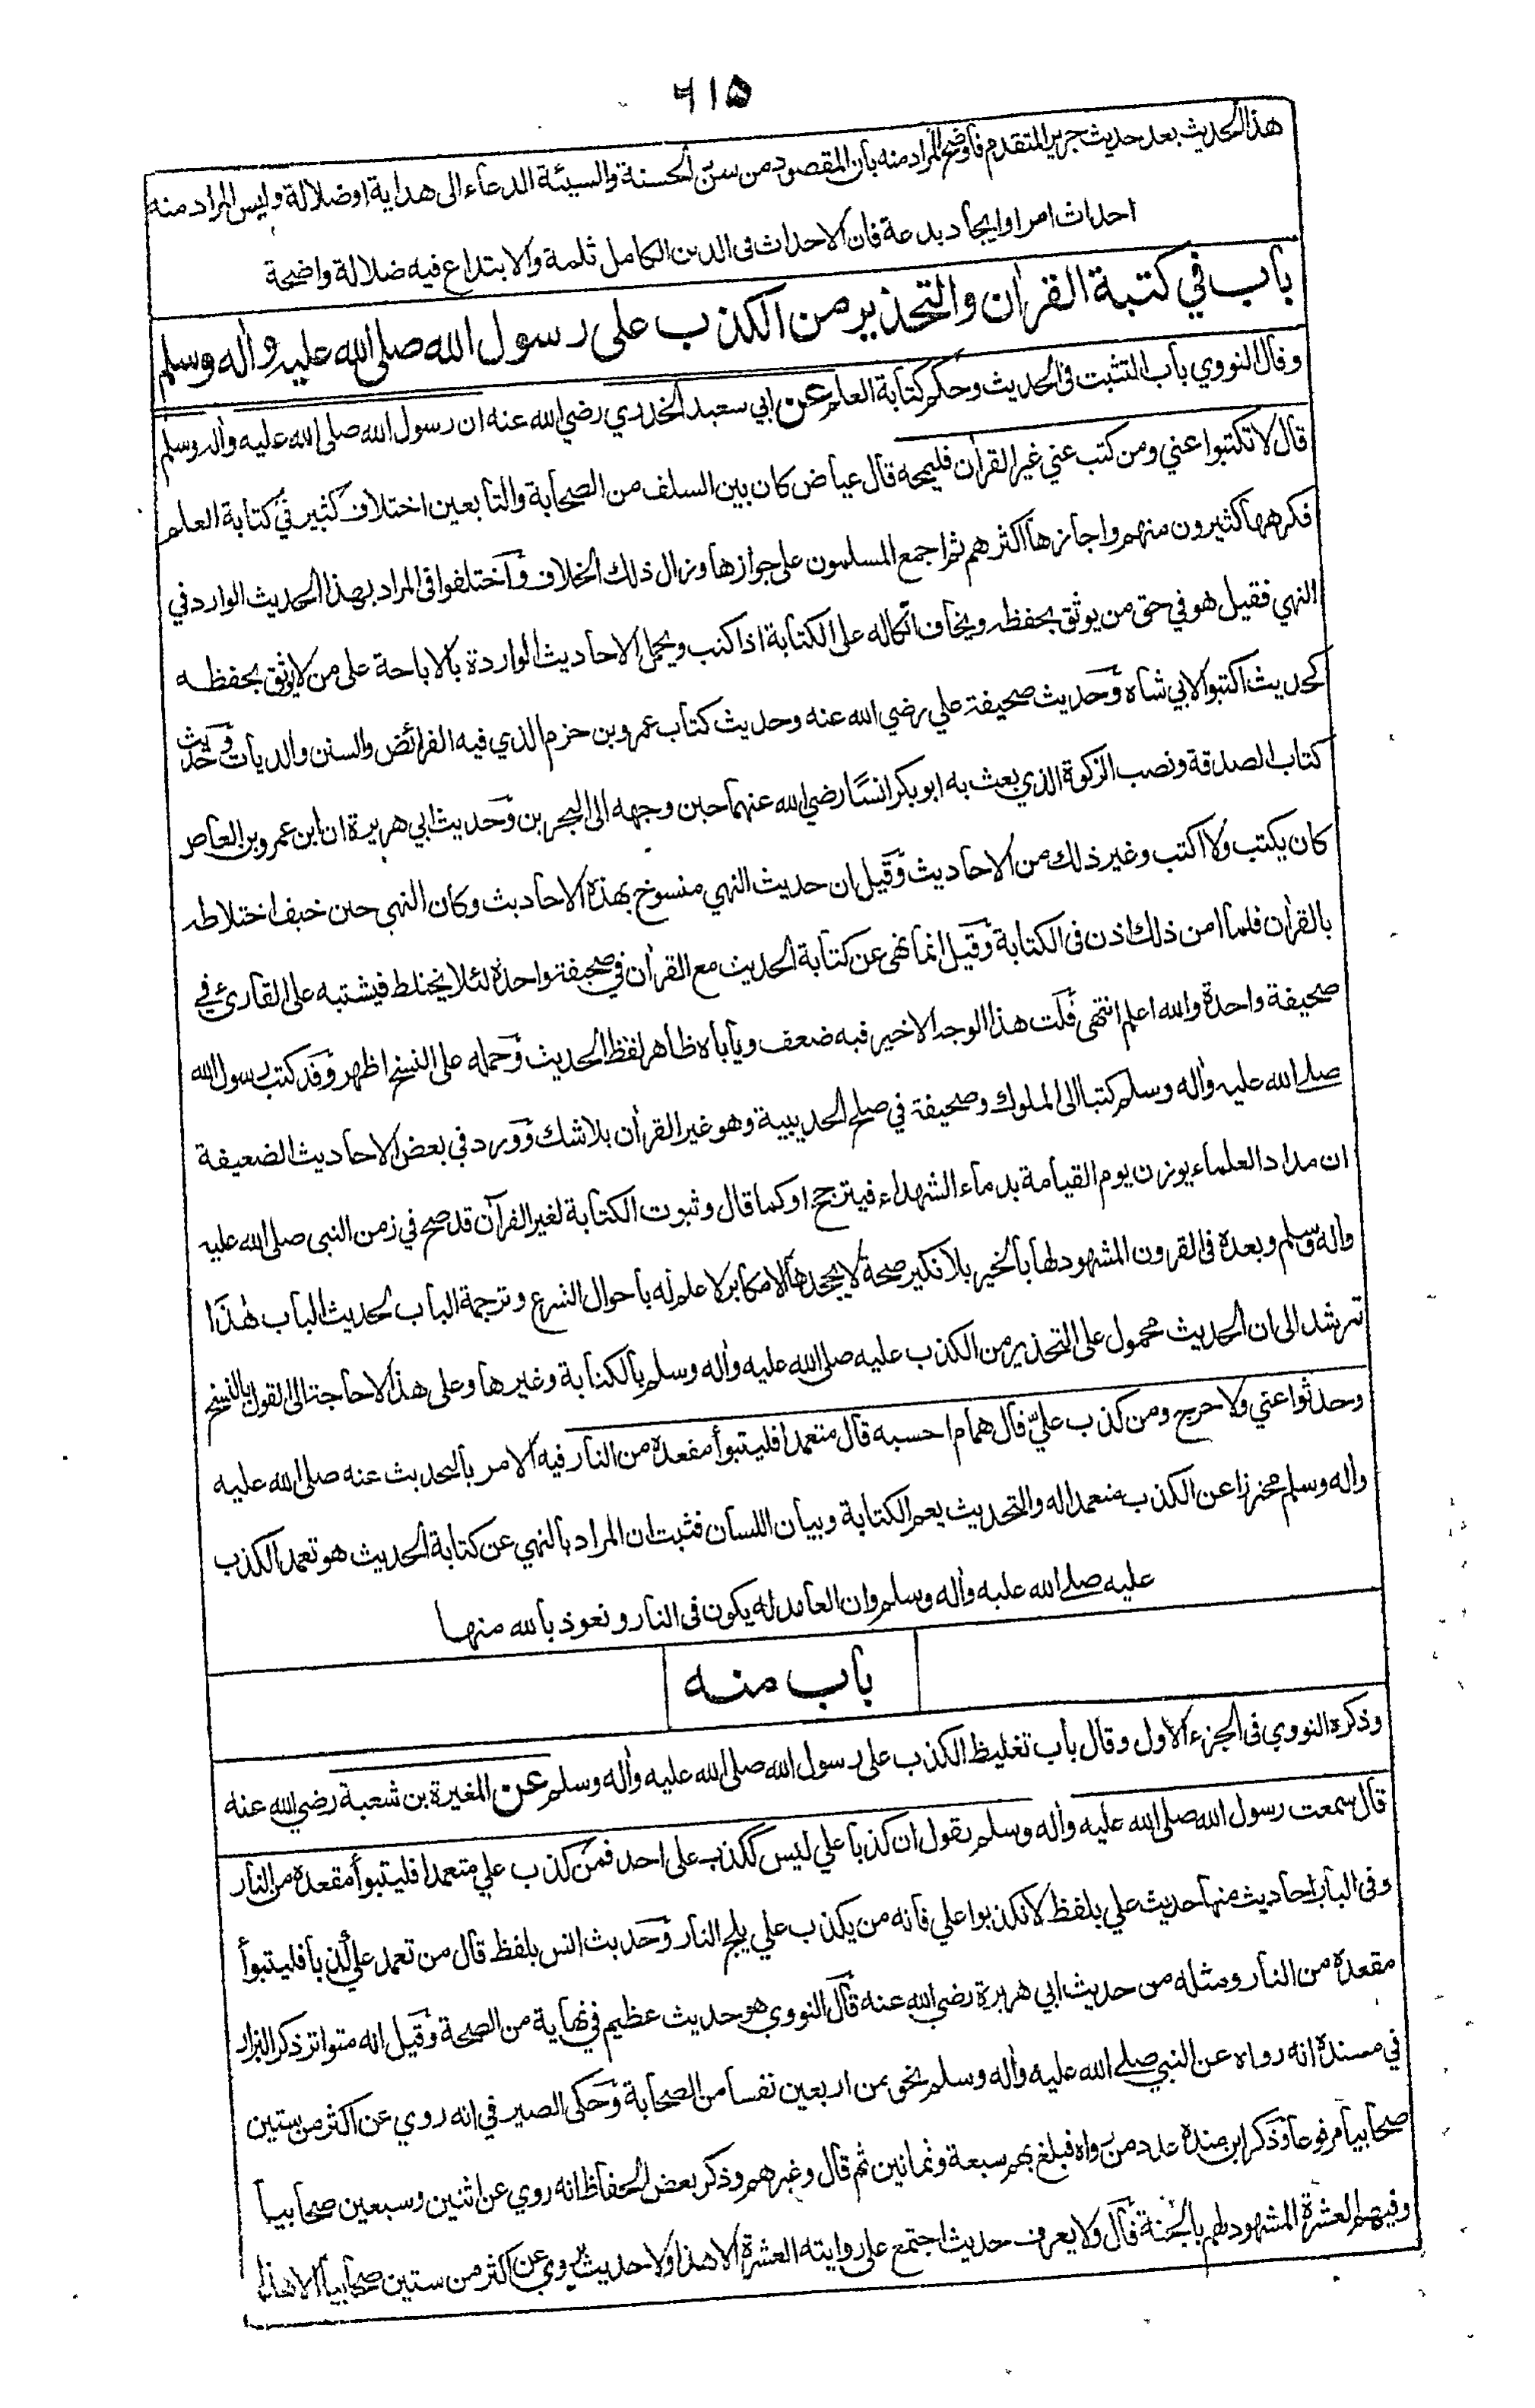 ٦١٥
هذا الحديث بعد حديث جرير المتقدم فأوضح المراد منه بأن المقصود من سنن الحسنة والسيئة الدعاء الى هداية او ضلالة وليس المراد منه
احداث امر او ايجاد بدعة فان الاحداث فى الدين الكامل ثلمة والابتداع فيه ضلالة واضحة
باب في كتبة القرأن والتحذير من الكذب على رسول الله صلى الله عليه وأله وسلم
وقال النووي باب التثبت فى الحديث وحكم كتابة العلم عن ابي سعيد الخدري رضي الله عنه ان رسول الله صلى الله عليه وأله وسلم
قال لا تكتبوا عني ومن كتب عني غير القرأن فليمحه قال عياض كان بين السلف من الصحابة والتابعين اختلاف كثير في كتابة العلم
فكرهها كثيرون منهم واجازها اكثرهم ثم اجمع المسلمون على جوازها وزال ذلك الخلاف واختلفوا فى المراد بهذا الحديث الوارد في
النهي فقيل هو في حق من يوثق بحفظه ويخاف اتكاله على الكتابة اذا كتب ويحمل الاحاديث الواردة بالاباحة على من لا يوثق بحفظه
كحديث اكتبوا لابي شاه وحديث صحيفة علي رضي الله عنه وحديث كتاب عمرو بن حزم الذي فيه الفرائض والسنن والديات وحديث
كتاب الصدقة ونصب الزكوة الذي بعث به ابو بكر انسًا رضي الله عنهما حين وجهه الى البحرين وحديث ابي هريرة ان ابن عمرو بن العاص
كان يكتب ولا اكتب وغير ذلك من الاحاديث وقيل ان حديث النهي منسوخ بهذه الاحاديث وكان النهي حين خيف اختلاطه
بالقرأن فلما امن ذلك اذن فى الكتابة وقيل انما نهى عن كتابة الحديث مع القرأن في صحيفة واحدة لئلا يختلط فيشتبه على القارئ في
صحيفة واحدة والله اعلم انتهى قلت هذا الوجه الاخير فيه ضعف ويأباه ظاهر لفظ الحديث وحمله على النسخ اظهر وقد كتب رسول الله
صلى الله عليه وأله وسلم كتبا الى الملوك وصحيفة في صلح الحديبية وهو غير القرأن بلا شك وورد في بعض الاحاديث الضعيفة
ان مداد العلماء يوزن يوم القيامة بدماء الشهداء فيترجح او كما قال وثبوت الكتابة لغير القرآن قد صح في زمن النبي صلى الله عليه
وأله وسلم وبعده فى القرون المشهود لها بالخير بلا نكير صحة لا يجحدها الا مكابر لا علم له بأحوال الشرع وترجمة الباب لحديث الباب هذا
ترشد الى ان الحديث محمول على التحذير من الكذب عليه صلى الله عليه وأله وسلم بالكتابة وغيرها وعلى هذا لا حاجة الى القول بالنسخ
وحدثوا عني ولا حرج ومن كذب عليّ قال همام احسبه قال متعمدا فليتبوأ مقعده من النار فيه الامر بالتحديث عنه صلى الله عليه
وأله وسلم محترزا عن الكذب متعمدا له والتحديث يعم الكتابة وبيان اللسان فثبت ان المراد بالنهي عن كتابة الحديث هو تعمد الكذب
عليه صلى الله عليه وأله وسلم وان العامد له يكون فى النار ونعوذ بالله منها
باب منه
وذكره النووي فى الجزء الاول وقال باب تغليظ الكذب على رسول الله صلى الله عليه وأله وسلم عن المغيرة بن شعبة رضي الله عنه
قال سمعت رسول الله صلى الله عليه وأله وسلم يقول ان كذبا علي ليس ككذب على احد فمن كذب علي متعمدا فليتبوأ مقعده من النار
وفى الباب احاديث منها حديث علي بلفظ لا تكذبوا علي فانه من يكذب علي يلج النار وحديث انس بلفظ قال من تعمد علي كذبا فليتبوأ
مقعده من النار ومثله من حديث ابي هريرة رضي الله عنه قال النووي هو حديث عظيم في نهاية من الصحة وقيل انه متواتر ذكر البزار
في مسنده انه رواه عن النبي صلى الله عليه وأله وسلم نحو من اربعين نفسا من الصحابة وحكى الصيرفي انه روي عن اكثر من ستين
صحابيا مرفوعا وذكر ابن منده عدد من رواه فبلغ بهم سبعة وثمانين ثم قال وغيرهم وذكر بعض الحفاظ انه روي عن اثنين وسبعين صحابيا
وفيهم العشرة المشهود لهم بالجنة قال ولا يعرف حديث اجتمع على روايته العشرة الا هذا ولا حديث يروى عن اكثر من ستين صحابيا الا هذا